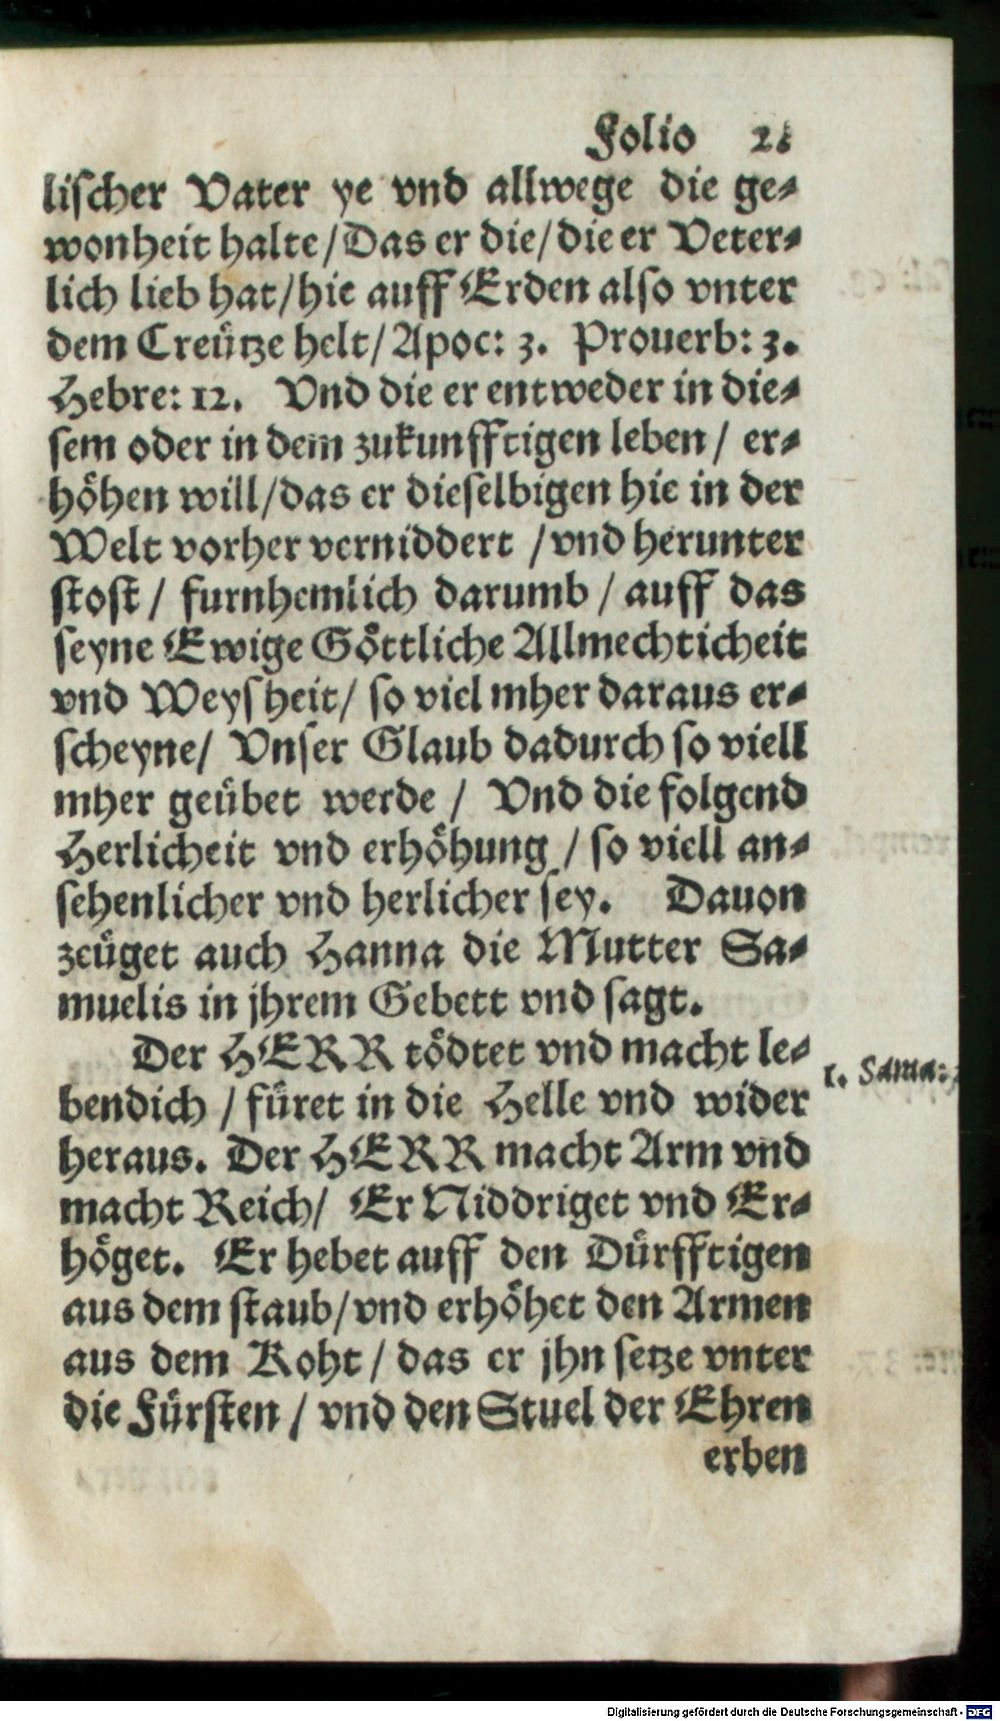 Folio
lischer Vater ye vnd allwege die ge-
wonheit halte/Das er die/die er Veter-
lich lieb hat/hie auff Erden also vnter
dem Creütze helt/Apoc: 3. Prouerb: 3.
Hebre: 12. Vnd die er entweder in die-
sem oder in dem zukunfftigen leben/ er-
höhen will/das er dieselbigen hie in der
Welt vorher verniddert /vnd herunter
stost/ furnhemlich darumb/ auff das
seyne Ewige Göttliche Allmechticheit
vnd Weysheit/ so viel mher daraus er-
scheyne/ Vnser Glaub dadurch so viell
mher geübet werde / Vnd die folgend
Herlicheit vnd erhöhung / so viell an-
sehenlicher vnd herlicher sey. Dauon
zeüget auch Hanna die Mutter Sa-
muelis in jhrem Gebett vnd sagt.
Der HERR tödtet vnd macht le-
bendich / füret in die Helle vnd wider
heraus. Der HERR macht Arm vnd
macht Reich/ Er Niddriget vnd Er-
höget. Er hebet auff den Dürfftigen
aus dem staub/vnd erhöhet den Armen
aus dem Koht/das er jhn setze vnter
die Fürsten/ vnd den Stuel der Ehren
erben
1. Sama:
Digitalisierung gefördert durch die Deutsche Forschungsgemeinschaft - DFG